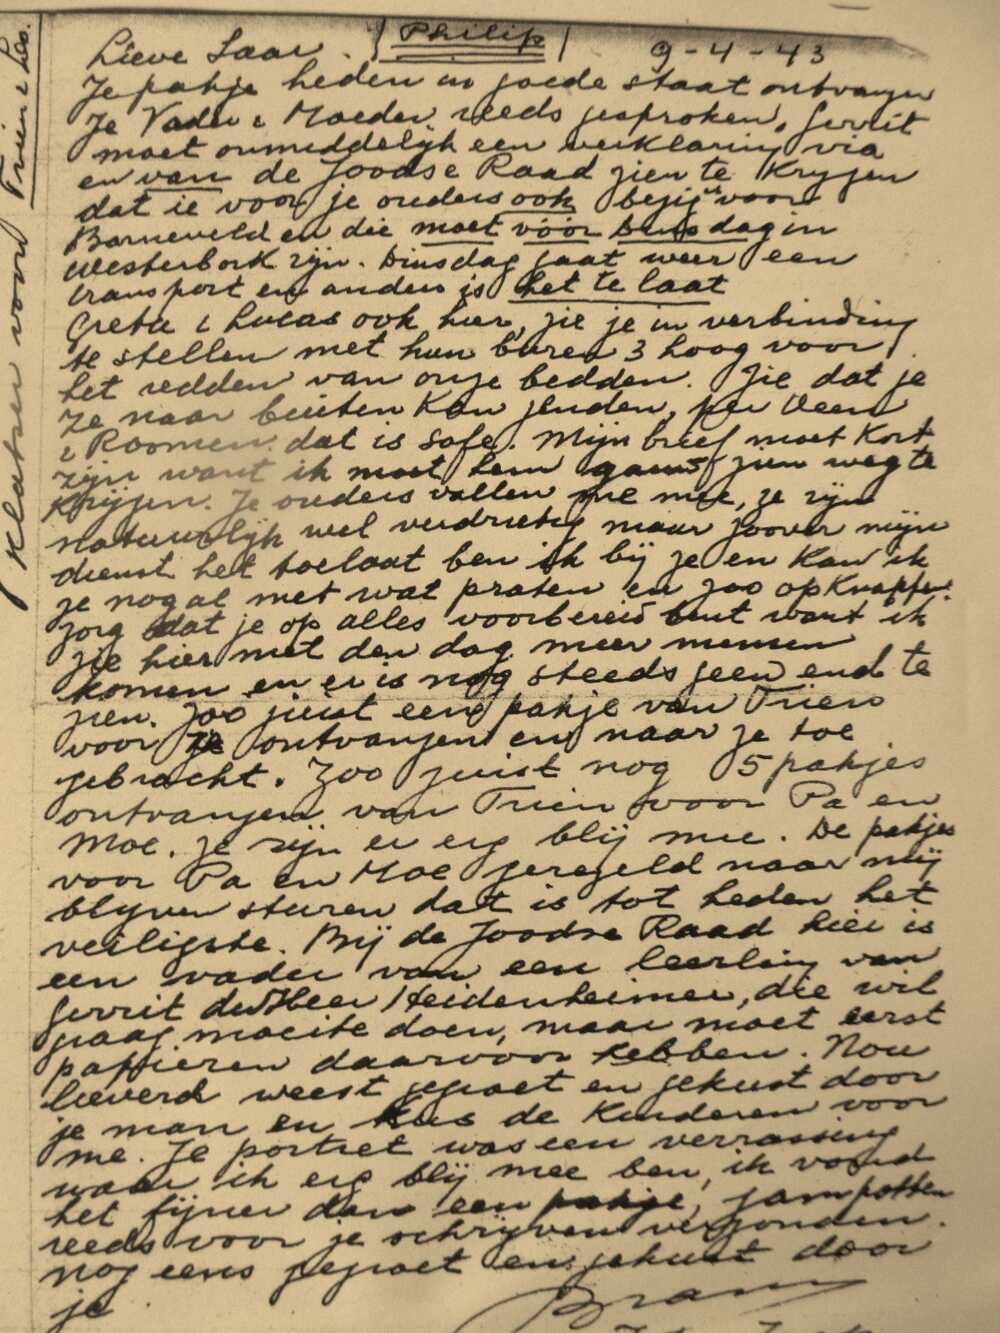 Philip
Lieve Saar. 9-4-43
Je pakje heden in goede staat ontvangen
Je Vader & Moeder reeds gesproken, Gerrit
moet onmiddelijk een verklaring via
en van de Joodse Raad zien te krygen
dat ie voor je ouders ook begij voor
Barneveld en die moet vóór Dinsdag in
Westerbork zijn. Dinsdag gaat weer een
transport en anders is het te laat
Greta & Lucas ook hier, zie je in verbinding
te stellen met hun buren 3 hoog voor
het redden van onze bedden. Zie dat je
ze naar buiten kan zenden, per Veen
& Roomen dat is safe. Mijn brief moet kort
zijn want ik moet hem gauw zien weg te
krijgen. Je ouders vallen me mee, ze zijn
natuurlijk wel verdrietig maar zoover mijn
dienst het toelaat ben ik bij ze en kan ik
ze nog al met wat praten en zoo opknappen.
Zorg dat je op alles voorbereid bent want ik
zie hier met den dag meer mensen
komen en er is nog steeds geen end te
zien. Zoo juist een pakje van Trien
voor je ontvangen en naar ze toe
gebracht. Zoo juist nog 5 pakjes
ontvangen van Trien voor Pa en
Moe. Ze zijn er erg blij mee. De pakjes
voor Pa en Moe geregeld naar mij
blijven sturen dat is tot heden het
veiligste. Bij de Joodse Raad hier is
een vader van een leerling van
Gerrit de Heer Heidenheimer, die wil
graag moeite doen, maar moet eerst
papieren daarvoor hebben. Nou
lieverd weest gegroet en gekust door
je man en kus de kinderen voor
me. Je portret was een verrassing
waar ik erg blij mee ben, ik vond
het fijner dan een pakje, jampotten
reeds voor je schrijven verzonden.
nog eens gegroet en gekust door
je Bram
Klatsen voor Trien & Leo.